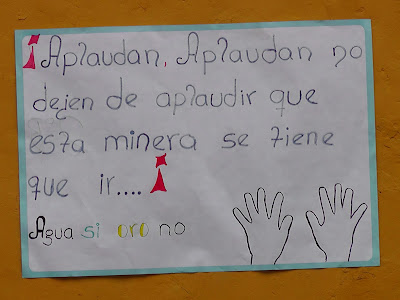 ¡Aplaudan, Aplaudan no
dejen de aplaudir que
esta minera se tiene
que ir....¡
Agua si oro no